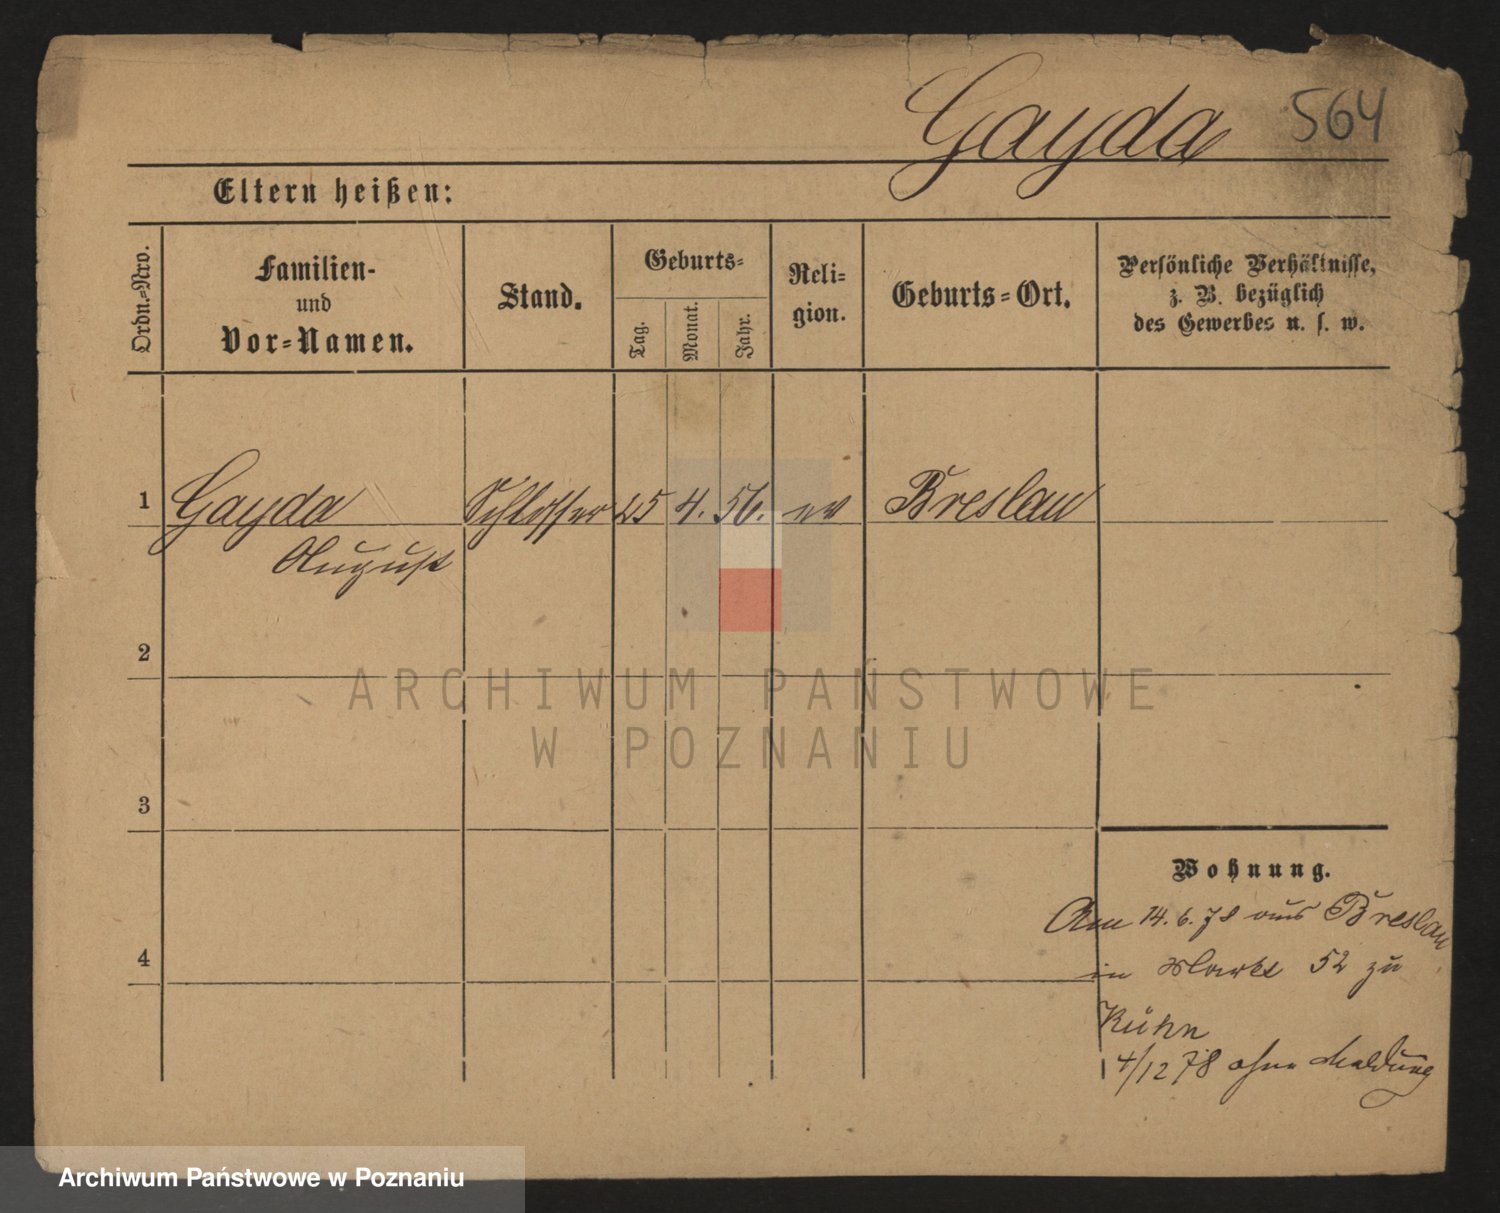 Gayda 564
Eltern heißen:
Ordn.-Nro.
Familien-
und
Vor-Namen.
Stand.
Geburts-
Tag.
Monat.
Jahr.
Reli-
gion.
Geburts-Ort.
Persönliche Verhältnisse,
z. B. bezüglich
des Gewerbes u. s. w.
1 Gayda Schlosser 25 4. 56. ev Breslau
August
2
ARCHIWUM PAŃSTWOWE
W POZNANIU
3
Wohnung.
Am 14. 6. 78 aus Breslau
4
in Markt 52 zu
Kühn
4/12 78 ohne Meldung
Archiwum Państwowe w Poznaniu